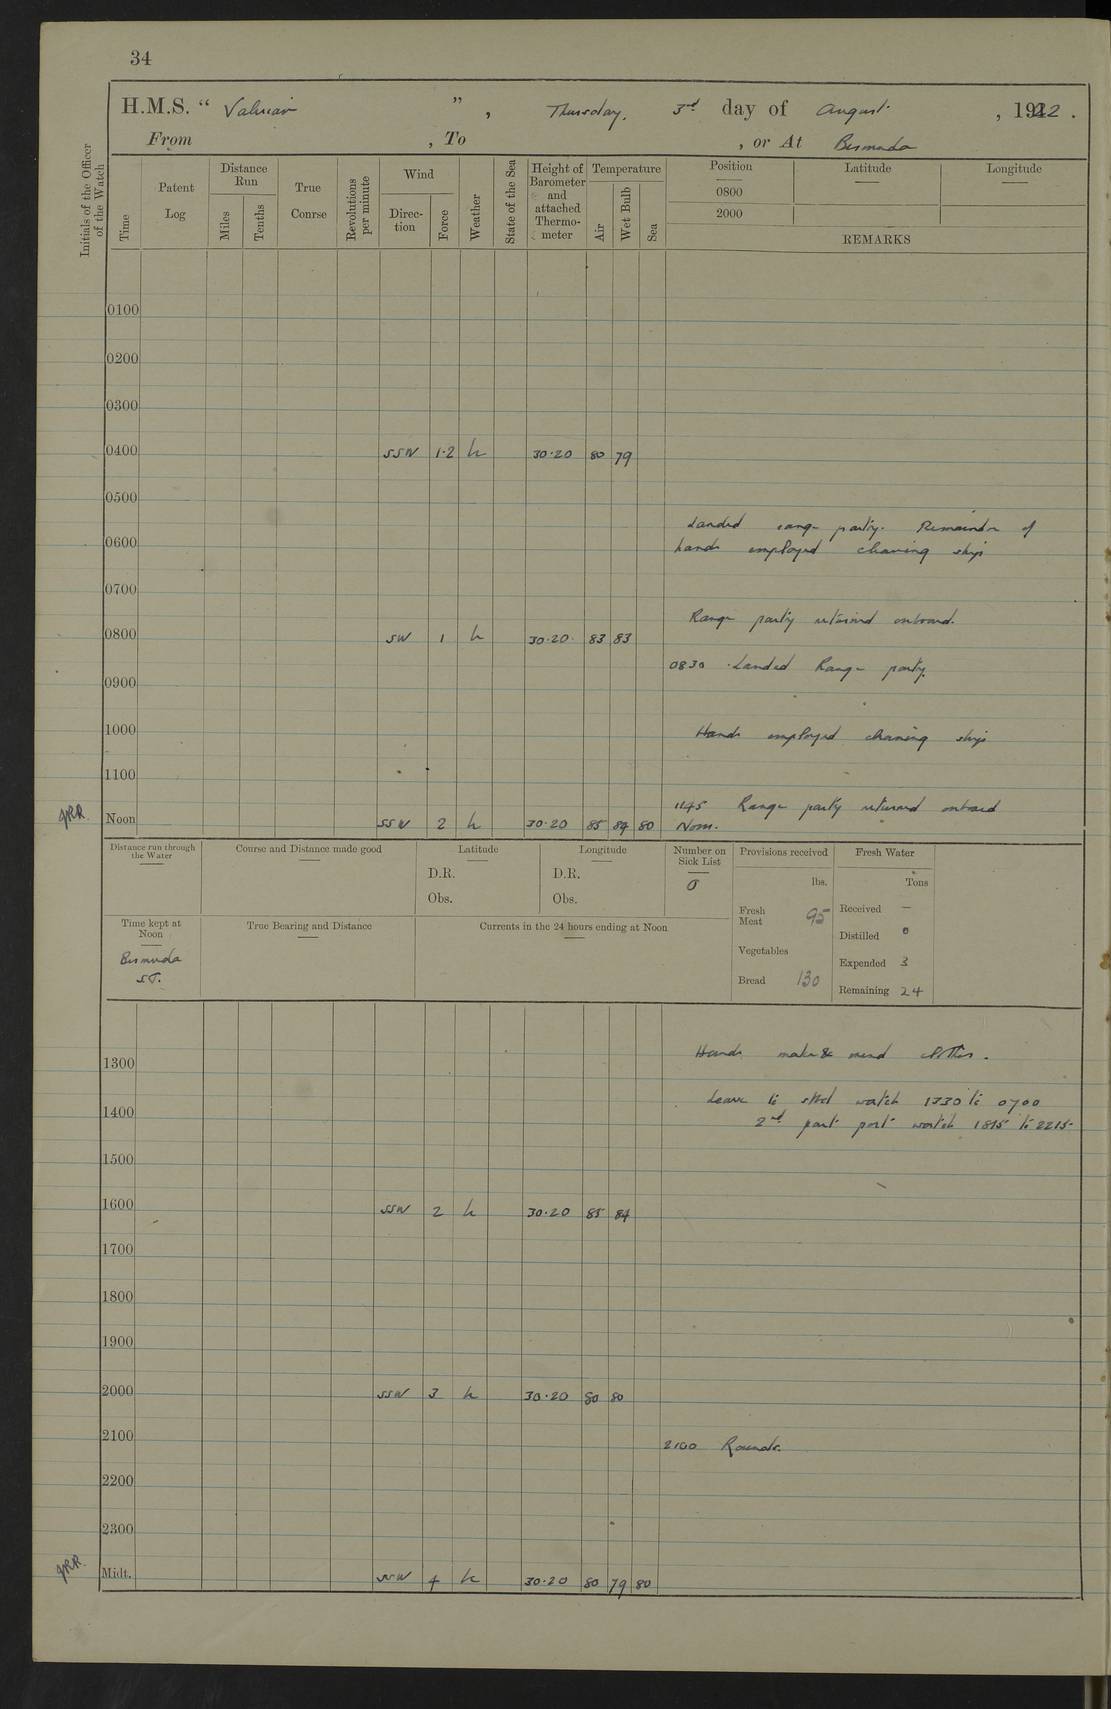 34
H.M.S. “ Valerian ” , Thursday, 3rd day of August , 1922 .
From , To , or At Bermuda
Initials of the Officer of the Watch
Time
Patent Log
Distance Run
Miles
Tenths
True Course
Revolutions per minute
Wind
Direction
Force
Weather
State of the Sea
Height of Barometer and attached Thermometer
Temperature
Air
Wet Bulb
Sea
Position Latitude Longitude
0800
2000
REMARKS
0100
0200
0300
0400 SSW 1·2 h 30·20 80 79
0500
Landed range party. Remainder of
0600 hands employed cleaning ship
0700
Range party returned onboard.
0800 SW 1 h 30·20 83 83
0830 Landed Range party.
0900
1000 Hands employed cleaning ship
1100
1145 Range party returned onboard
JRR Noon SSW 2 h 30·20 85 84 80 Noon.
Distance run through the Water
Course and Distance made good
Latitude
D.R.
Obs.
Longitude
D.R.
Obs.
Number on Sick List
0
Provisions received
lbs.
Fresh Meat 95
Vegetables
Bread 130
Fresh Water
Tons
Received —
Distilled 0
Expended 3
Remaining 24
Time kept at Noon
Bermuda
S.T.
True Bearing and Distance
Currents in the 24 hours ending at Noon
Hands make & mend clothes.
1300
Leave to stbd watch 1330 to 0700
1400 2nd part port watch 1815 to 2215
1500
1600 SSW 2 h 30·20 85 84
1700
1800
1900
2000 SSW 3 h 30·20 80 80
2100 2100 Rounds.
2200
2300
JRR. Midt. SSW 4 h 30·20 80 79 80